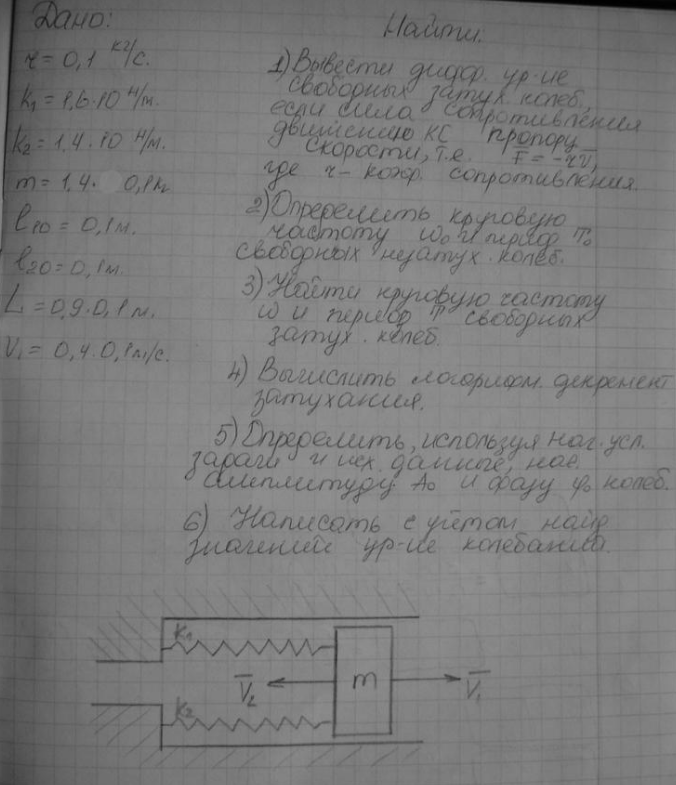 Дано:
r = 0,1 кг/с.
k₁ = 1,6·10 н/м.
k₂ = 1,4·10 н/м.
m = 1,4 0,1 кг
l₁₀ = 0,1 м.
l₂₀ = 0,1 м.
L = 0,9·0,1 м.
V₁ = 0,4·0,1 м/с.
Найти.
1) Вывести дифф. ур-ие
свободных затух. колеб.,
если сила сопротивления
движению КС пропорц.
скорости, т.е. F̄ = -rV̄,
где r – коэф. сопротивления.
2) Определить круговую
частоту ω₀ и период T₀
свободных незатух. колеб.
3) Найти круговую частоту
ω и период T свободных
затух. колеб.
4) Вычислить логарифм. декремент
затухания.
5) Определить, используя нач. усл.
задачи и исх. данные, нач.
амплитуду A₀ и фазу φ₀ колеб.
6) Написать с учётом найд.
значений ур-ие колебания.
k₁
V̄₂
m
V̄₁
k₂